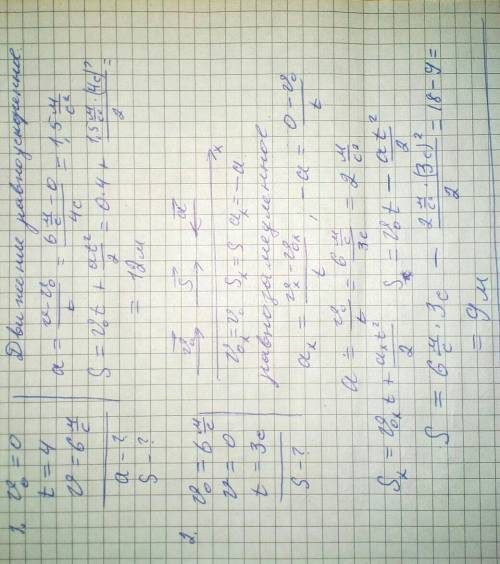 1. v₀ = 0
t = 4
v = 6 м/с
a - ?
S - ?
Движение равноускоренное.
a = (v - v₀)/t = (6 м/с - 0)/4с = 1,5 м/с²
S = v₀t + at²/2 = 0·4 + (1,5 м/с² · (4с)²)/2 =
= 12 м
2. v₀ = 6 м/с
v = 0
t = 3с
S - ?
v₀→ S→ a←
x
v₀ₓ = v₀ Sₓ = S aₓ = -a
равнозамедленное
aₓ = (vₓ - v₀ₓ)/t, -a = (0 - v₀)/t
a = v₀/t = (6 м/с)/3с = 2 м/с²
Sₓ = v₀ₓt + aₓt²/2 Sₓ = v₀t - at²/2
S = 6 м/с · 3с - (2 м/с² · (3с)²)/2 = 18 - 9 =
= 9 м